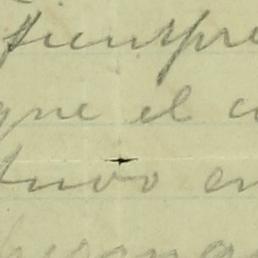 tiempre
que el c
tuvo en